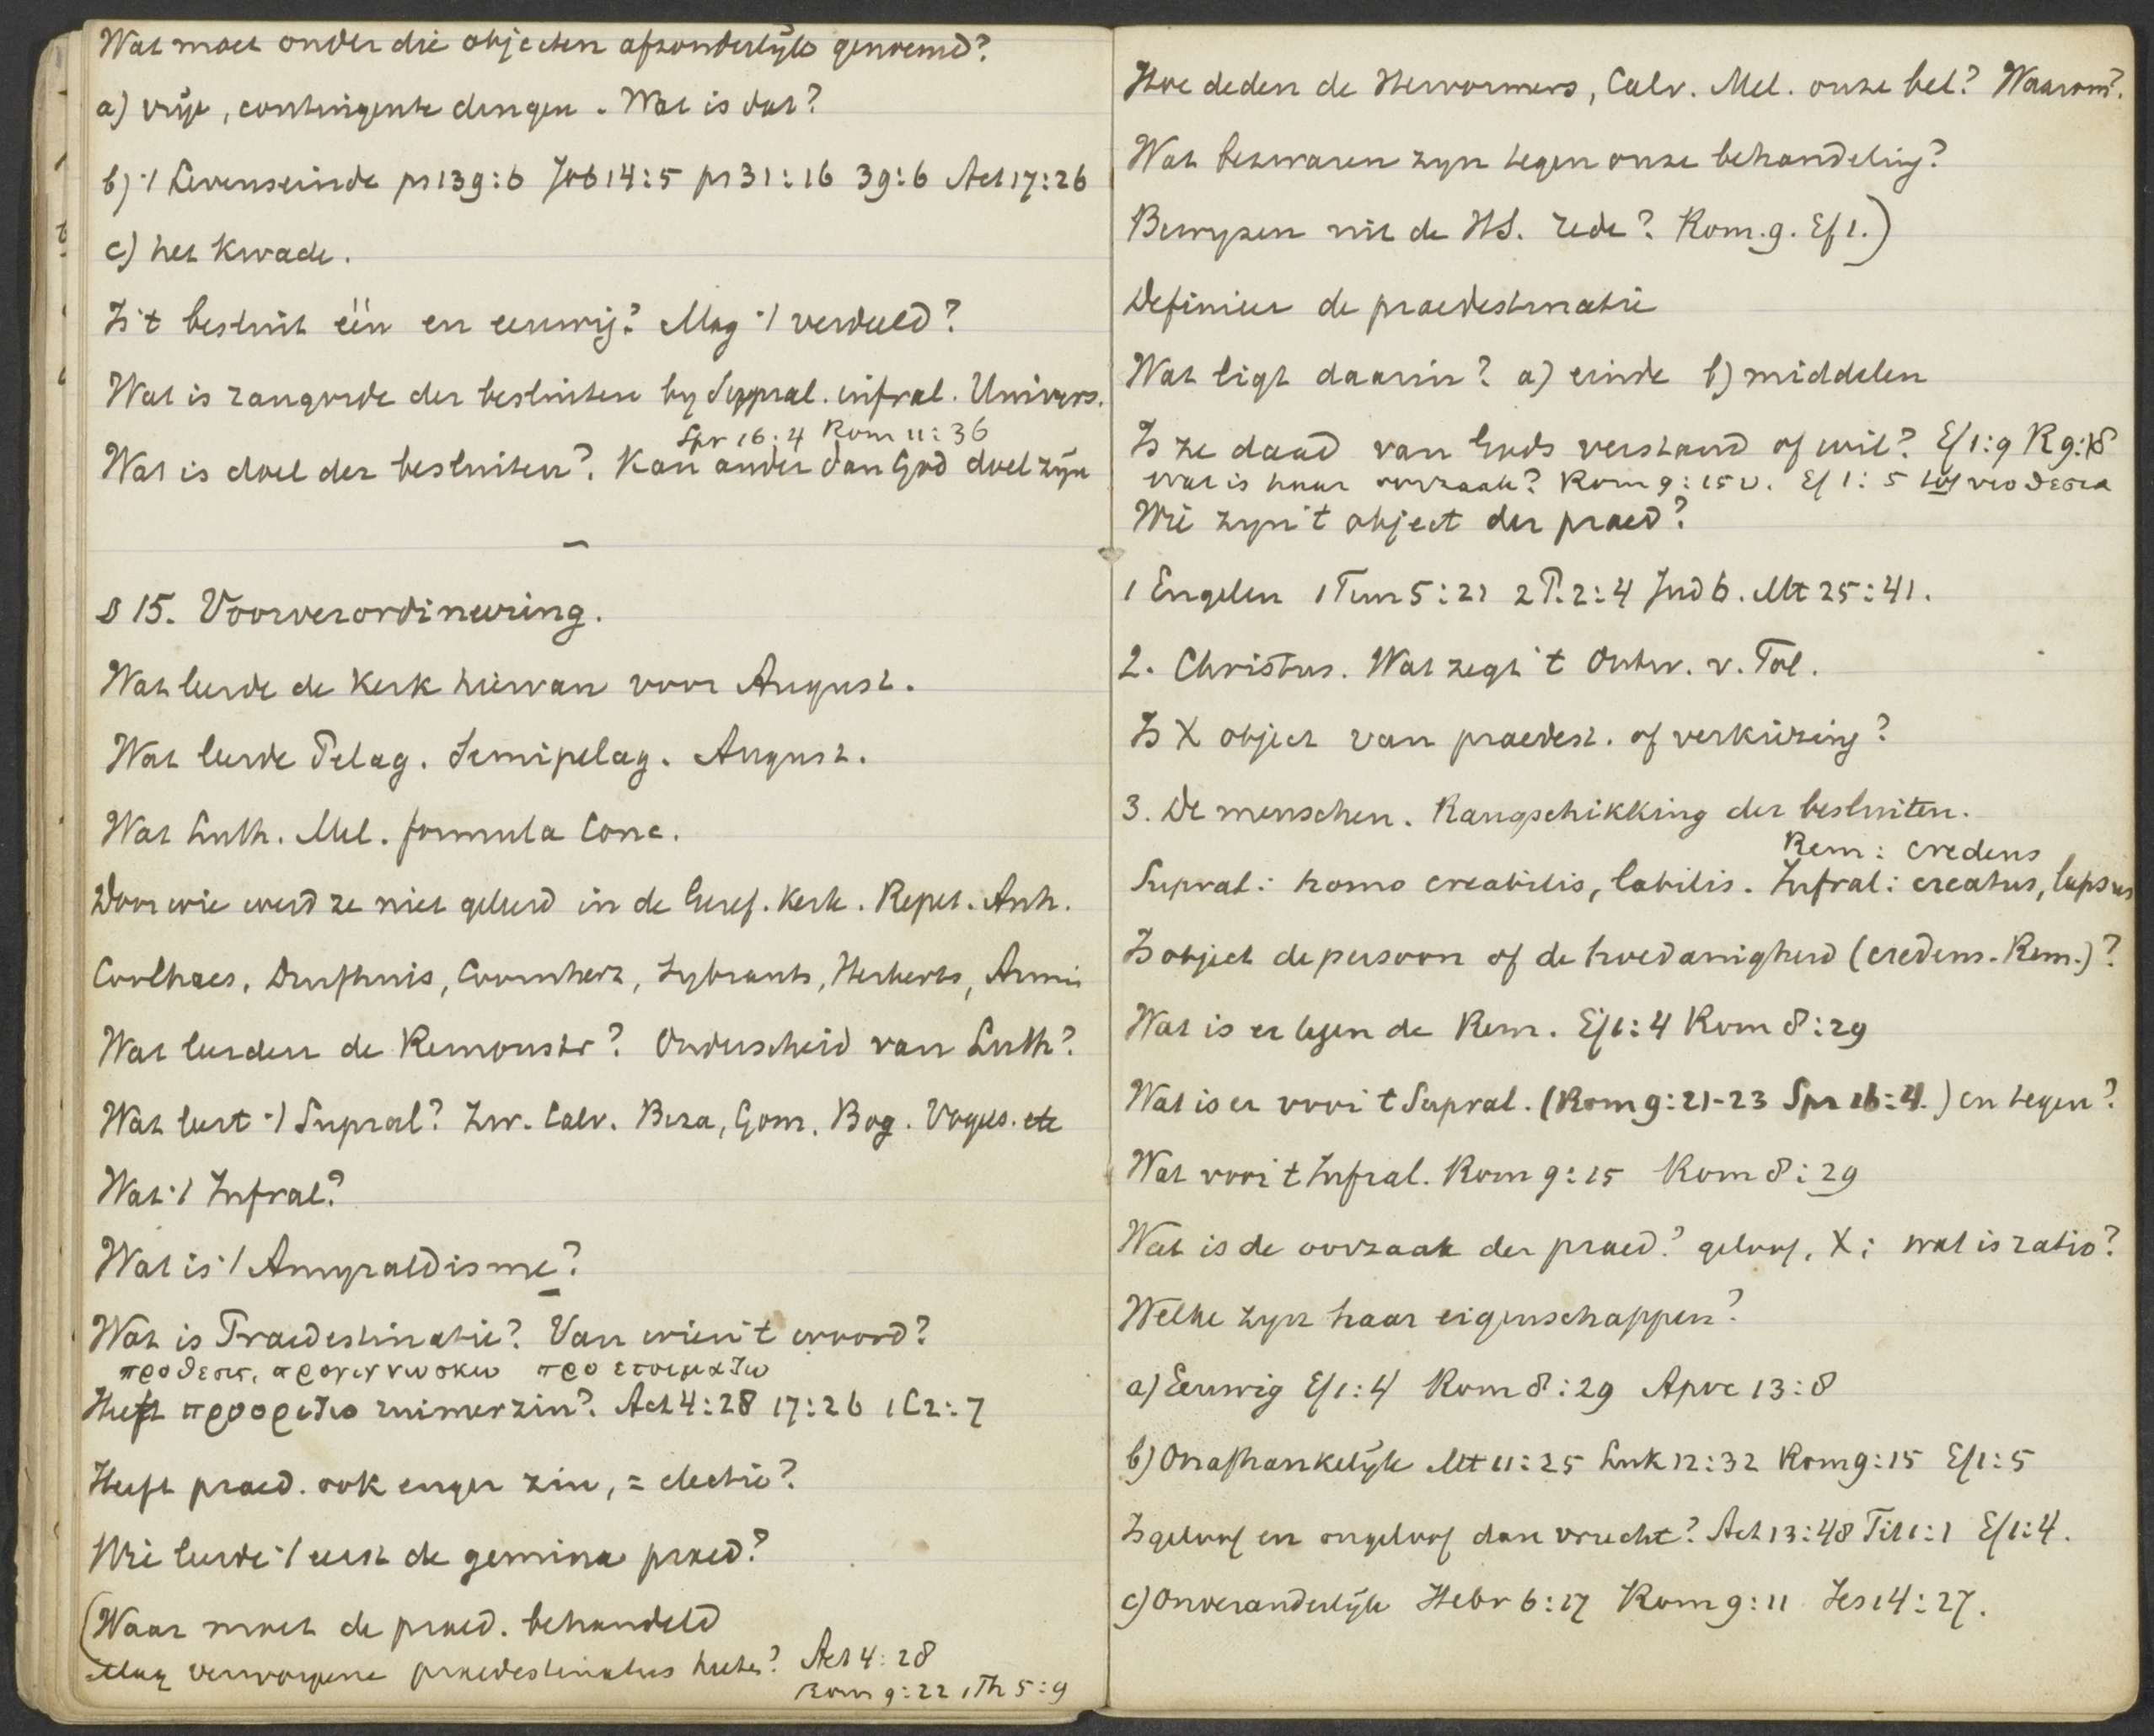 Wat moet onder die objecten afzonderlijk genoemd?
a) vrije, contingente dingen. Wat is dat?
b) 't Levenseinde ps 139:6 Job 14:5 ps 31:16 39:6 Act 17:26
c) het kwade.
Is 't besluit één en eeuwig? Mag 't verdeeld?
Wat is rangorde der besluiten by Suppral. infral. Univers.
Spr 16:4 Rom 11:36
Wat is doel der besluiten? Kan ander dan God doel zijn
—
§ 15. Voorverordineering.
Wat leerde de Kerk hiervan voor August.
Wat leerde Pelag. Semipelag. August.
Wat Luth. Mel. formula Conc.
Door wie werd ze niet geleerd in de Geref. Kerk. Repet. Anh.
Coolhaes, Duifhuis, Coornhert, Sybrants, Herberts, Armin
Wat leerden de Remonstr? Onderscheid van Luth?
Wat leert 't Supral? Zw. Calv. Beza, Gom. Bog. Voges. etc
Wat 't Infral?
Wat is 't Amyraldisme?
—
Wat is Praedestinatie? Van wien 't woord?
προθεσις, προγιγνωσκω προετοιμαζω
Heeft προοριζω ruimer zin? Act 4:28 17:26 1C2:7
Heeft praed. ook enger zin, = electio?
Wie leerde 't eerst de gemina praed?
(Waar moet de praed. behandeld
Mag verworpene praedestinatus heeten? Act 4:28
Rom 9:22 1Th 5:9
Hoe deden de Hervormers, Calv. Mel. onze bel? Waarom?
Wat bezwaren zyn tegen onze behandeling?
Bewyzen uit de HS. rede? Rom. 9. Ef 1.)
Definieer de praedestinatie
Wat ligt daarin? a) einde b) middelen
Is ze daad van Gods verstand of wil? Ef 1:9 R 9:18
wat is haar oorzaak? Rom 9:15v. Ef 1:5 υιοθεσια
Wie zyn 't object der praed?
1 Engelen 1Tim 5:21 2P. 2:4 Jud 6. Mt 25:41.
2. Christus. Wat zegt 't Ontw. v. Tol.
Is X object van praedest. of verkiezing?
3. De menschen. Rangschikking der besluiten.
Rem: credens
Supral: homo creabilis, labilis. Infral: creatus, lapsus
Is object de persoon of de hoedanigheid (credens. Rem.)?
Wat is er tegen de Rem. Ef 1:4 Rom 8:29
Wat is er voor 't Supral. (Rom 9:21-23 Spr 16:4.) en tegen?
Wat voor 't Infral. Rom 9:15 Rom 8:29
Wat is de oorzaak der praed? geloof, X; wat is ratio?
Welke zyn haar eigenschappen?
a) Eeuwig Ef 1:4 Rom 8:29 Apoc 13:8
b) Onafhankelijk Mt 11:25 Luk 12:32 Rom 9:15 Ef 1:5
Is geloof en ongeloof dan vrucht? Act 13:48 Tit 1:1 Ef 1:4.
c) Onveranderlijk Hebr 6:17 Rom 9:11 Jes 14:27.